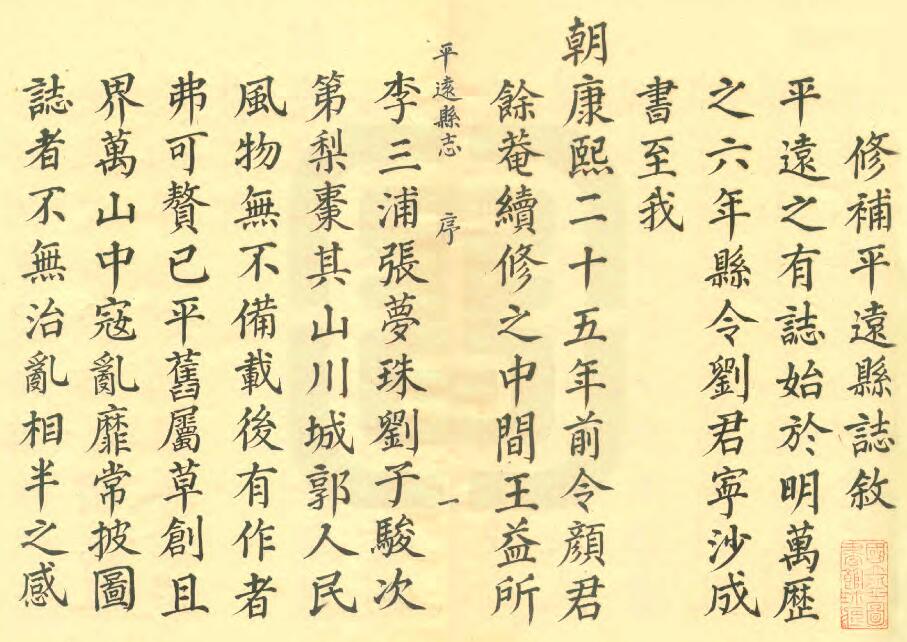 修補平遠縣誌敘
平遠之有誌始於明萬歷
之六年縣令劉君寧沙成
書至我
朝康熙二十五年前令顏君
餘菴續修之中間王益所
平遠縣志 序 一
李三浦張夢珠劉子駿次
第梨棗其山川城郭人民
風物無不備載後有作者
弗可贅已平舊屬草創且
界萬山中寇亂靡常披圖
誌者不無治亂相半之感